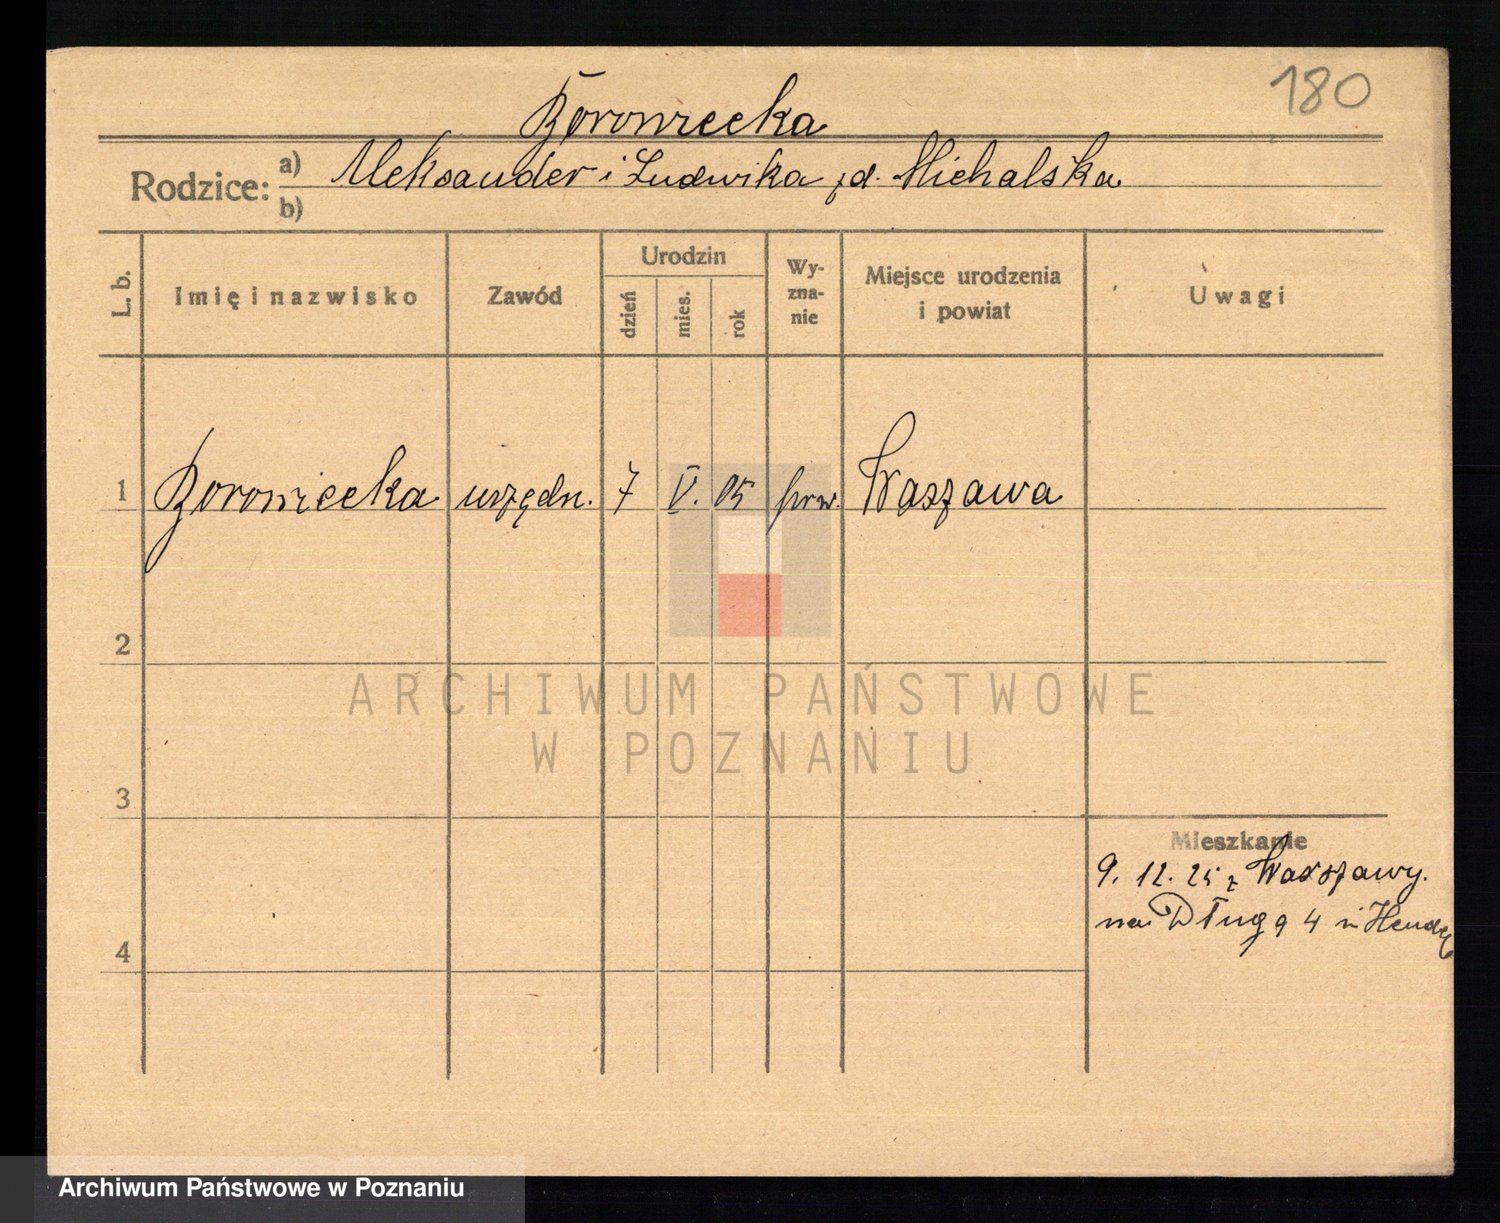 180
Borowiecka
Rodzice: a) Aleksander i Ludwika zd. Michalska
b)
L. b.
Imię i nazwisko
Zawód
Urodzin
dzień
mies.
rok
Wy-
zna-
nie
Miejsce urodzenia
i powiat
Uwagi
1 Borowiecka urzędn. 7 V. 05 praw. Waszawa
2
3
4
Mieszkanie
9. 12. 25 z Warszawy.
na Długą 4
ARCHIWUM PAŃSTWOWE
W POZNANIU
Archiwum Państwowe w Poznaniu